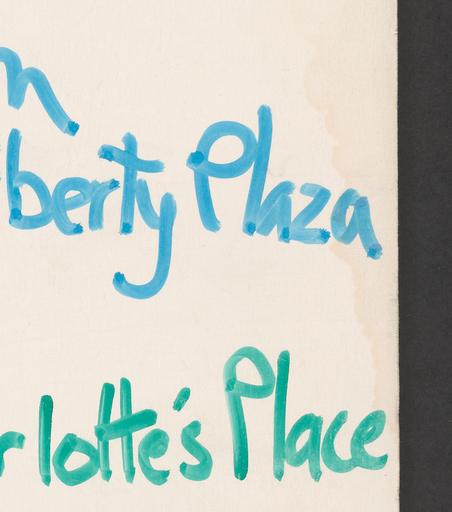 n
iberty Plaza
rlotte's Place